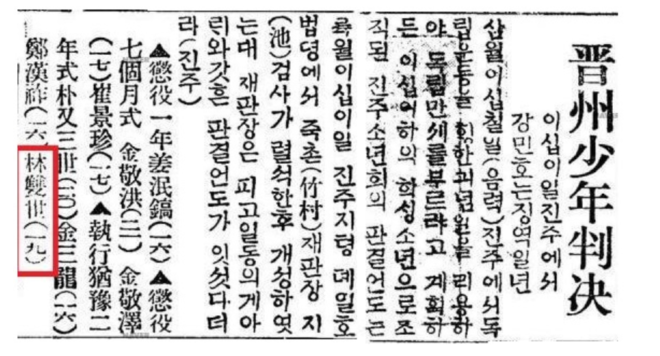 晋州少年判決
이십이일진주에서
강민호는징역일년
삼월이십칠일(음력)진주에서독
립운동을 한긔념일을 리용하
야 독립만세를부르라고 계획하
든 이십이하의 학성소년으로조
직된 진주소년회의 판결언도는
륙월이십이일 진주지텽 뎨일호
법뎡에서 죽촌(竹村)재판장 지
(池)검사가 렬석한후 개성하엿
는대 재판장은 피고일동의게아
릐와갓흔 판결언도가 잇섯다더
라(진주)
▲懲役一年姜泯鎬(一六)▲懲役
七個月式 金敬洪 金敬澤
(一七)崔景珍(一七)▲執行猶豫二
年式朴又三世 金三龍(一六)
鄭漢祚 林雙世(一九)